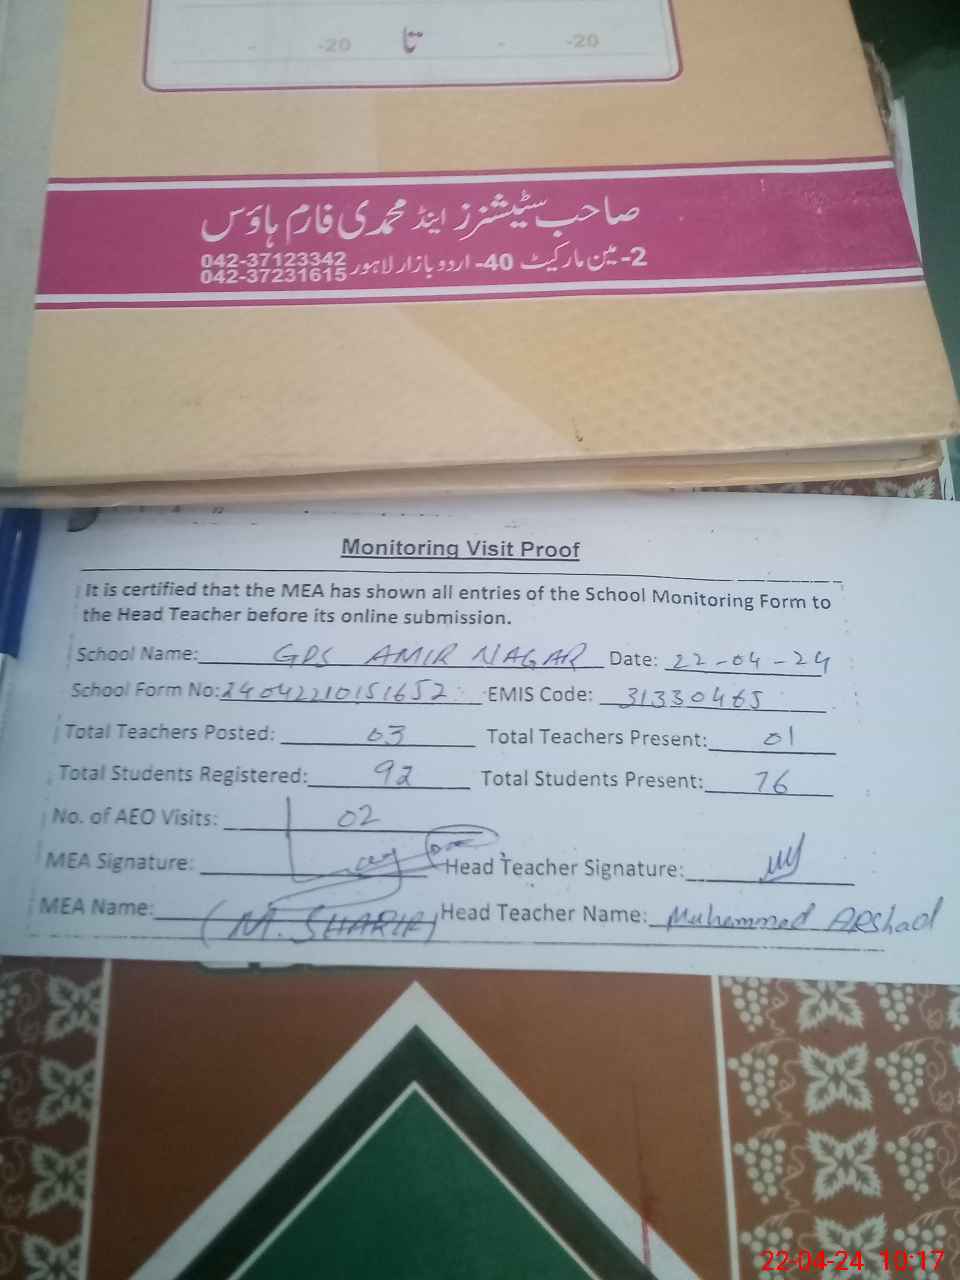 -20 تا -20
صاحب سٹیشنرز اینڈ محمدی فارم ہاؤس
2- مین مارکیٹ 40- اردو بازار لاہور 042-37123342
042-37231615
Monitoring Visit Proof
It is certified that the MEA has shown all entries of the School Monitoring Form to
the Head Teacher before its online submission.
School Name: GPS AMIR NAGAR Date: 22-04-24
School Form No: 24042210151652 EMIS Code: 31330465
Total Teachers Posted: 03 Total Teachers Present: 01
Total Students Registered: 92 Total Students Present: 76
No. of AEO Visits: 02
MEA Signature: Head Teacher Signature:
MEA Name: (M. SHARIF) Head Teacher Name: Muhammad Arshad
22-04-24 10:17